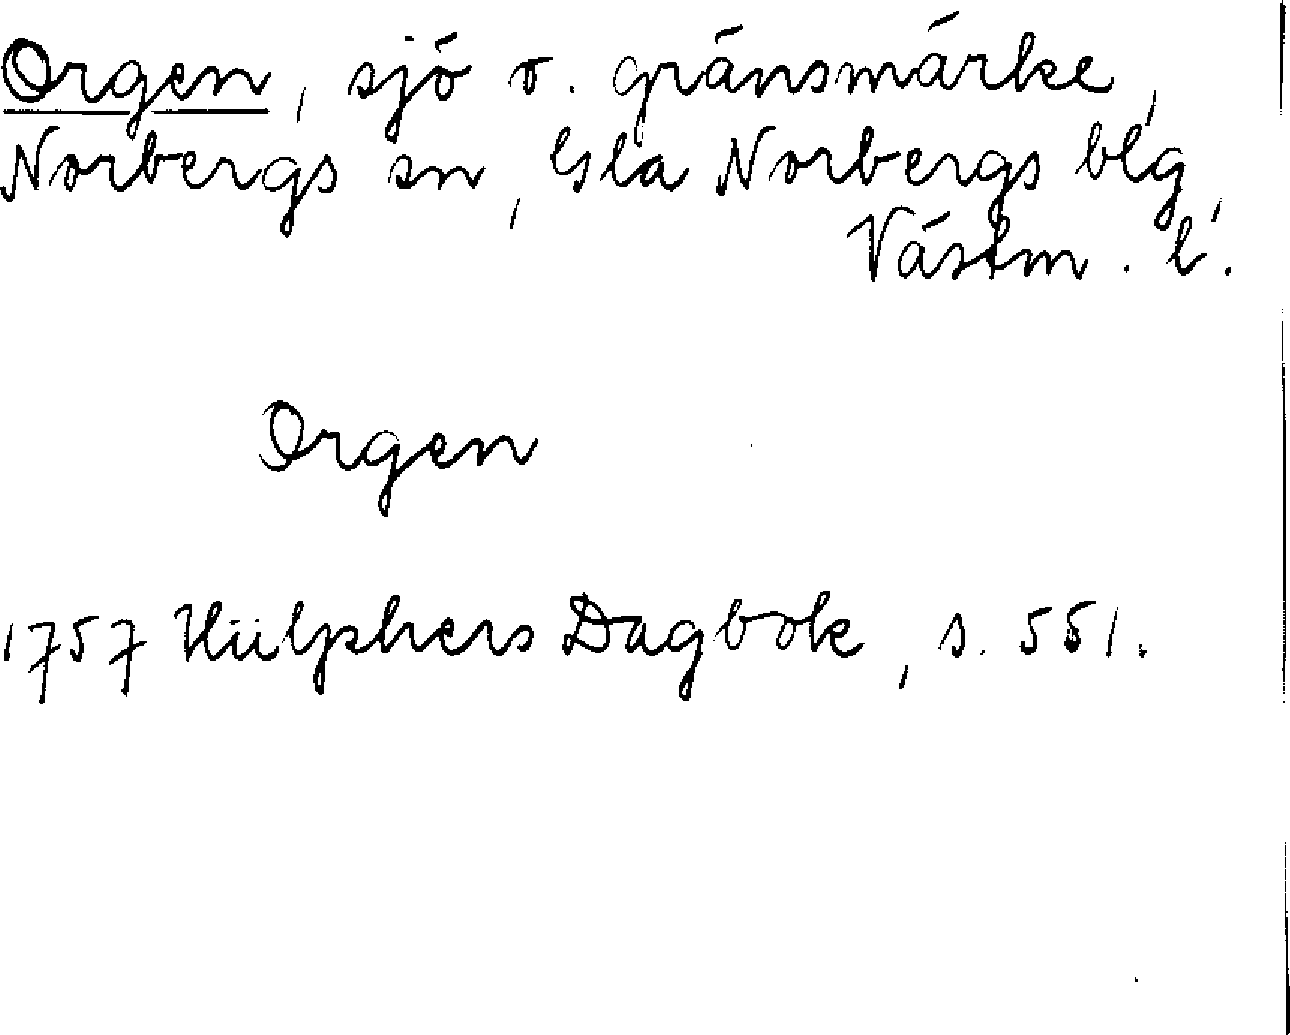 Orgen, sjö o. gränsmärke,
Norbergs sn, Gla Norbergs blg,
Västm. l.
Orgen
1757 Hülphers Dagbok, s. 551.